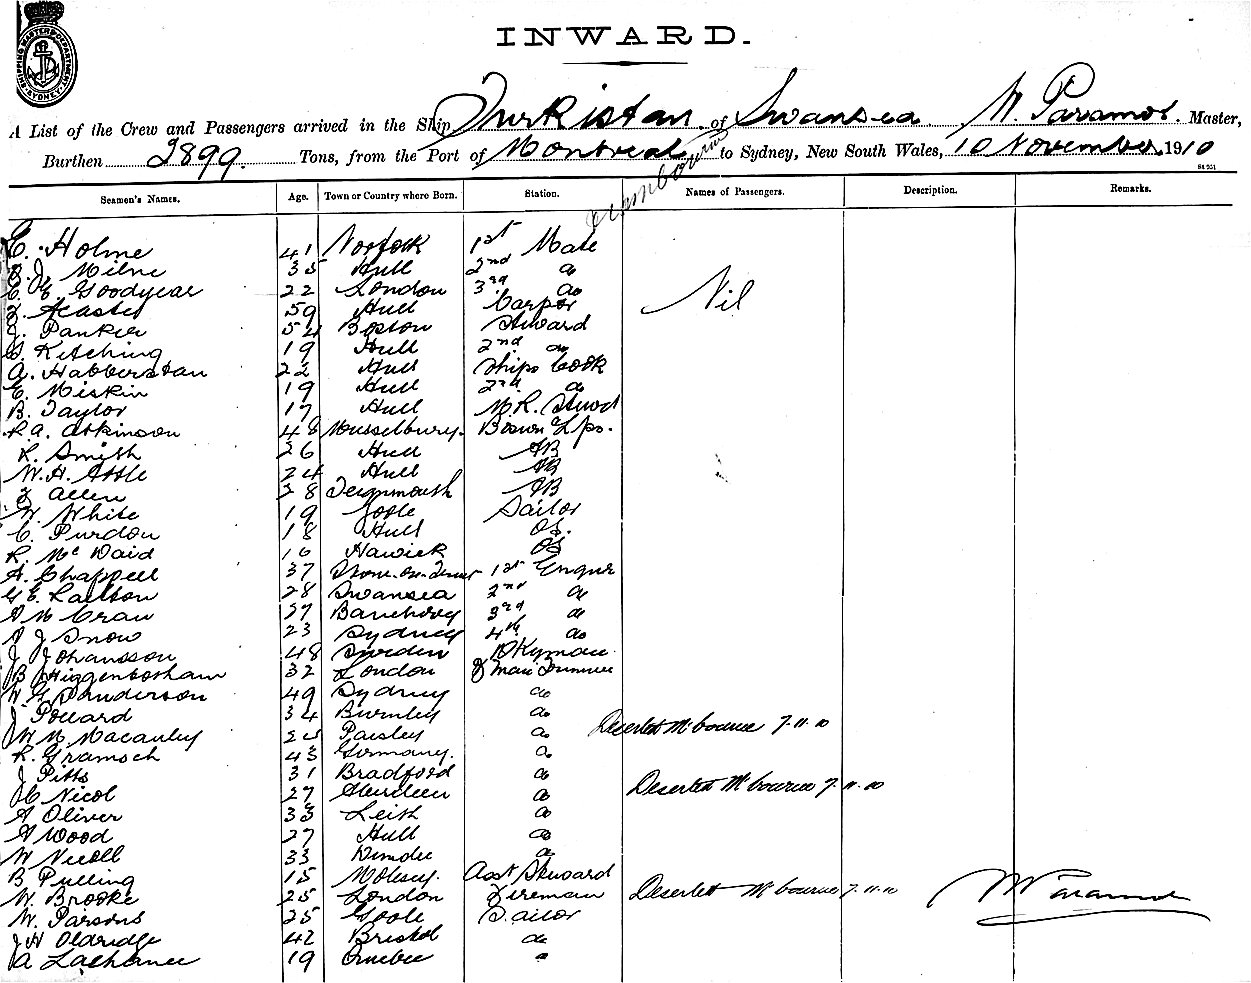 SHIPPING MASTER'S DEPARTMENT SYDNEY
INWARD.
A List of the Crew and Passengers arrived in the Ship Turkistan of Swansea W. Paramor. Master,
Burthen 2899. Tons, from the Port of Montreal to Sydney, New South Wales, 10 November 1910
Seamen's Names. Age. Town or Country where Born. Station. Names of Passengers. Description. Remarks.
E. Holme 41 Norfolk 1st Mate
J. Milne 35 Hull 2nd do
Goodyear 22 London 3rd do
Nil
59 Hull Carptr
J. Pankier 54 Boston Steward
Kitching 19 Hull 2nd do
A. Habberstan 22 Hull Ships Cook
E. Miskin 19 Hull 2nd do
B. Taylor 17 Hull M.R. Stewd
R. A. Atkinson 48 Musselbury. Bosun Lps.
R. Smith 26 Hull AB
W. H. Astle 24 Hull AB
Allen 28 Teignmouth AB
W. White 19 Goole Sailor
C. Purdon 18 Hull OS.
R. Mc Daid 16 Hawick OS
A. Chappell 37 1st Engnr
G E. Railson 28 Swansea 2nd do
A M Craw 27 Banchory 3rd do
A J Snow 23 Sydney 4th do
J Johansson 48 Sweden Dkyman
B Higgenbotham 32 London
W G Sanderson 49 Sydney do
J Pollard 34 Burnley do
Deserted Mbourne 7.11.10
W M Macauley 24 Paisley do
R. Gramsch 43 Germany. do
J Pitts 31 Bradford do
J C Nicol 27 Aberdeen do Deserted Mbourne 7.11.10
A Oliver 33 Leith do
A Wood 27 Hull do
W Nicoll 33 Dundee do
B Pulling 15 Molesey. Asst Steward
W. Brooke 25 London Fireman Deserted Mbourne 7.11.10 W Paramor
W. Parsons 25 Goole Sailor
J H Oldridge 42 Bristol do
A Lachance 19 Quebec "